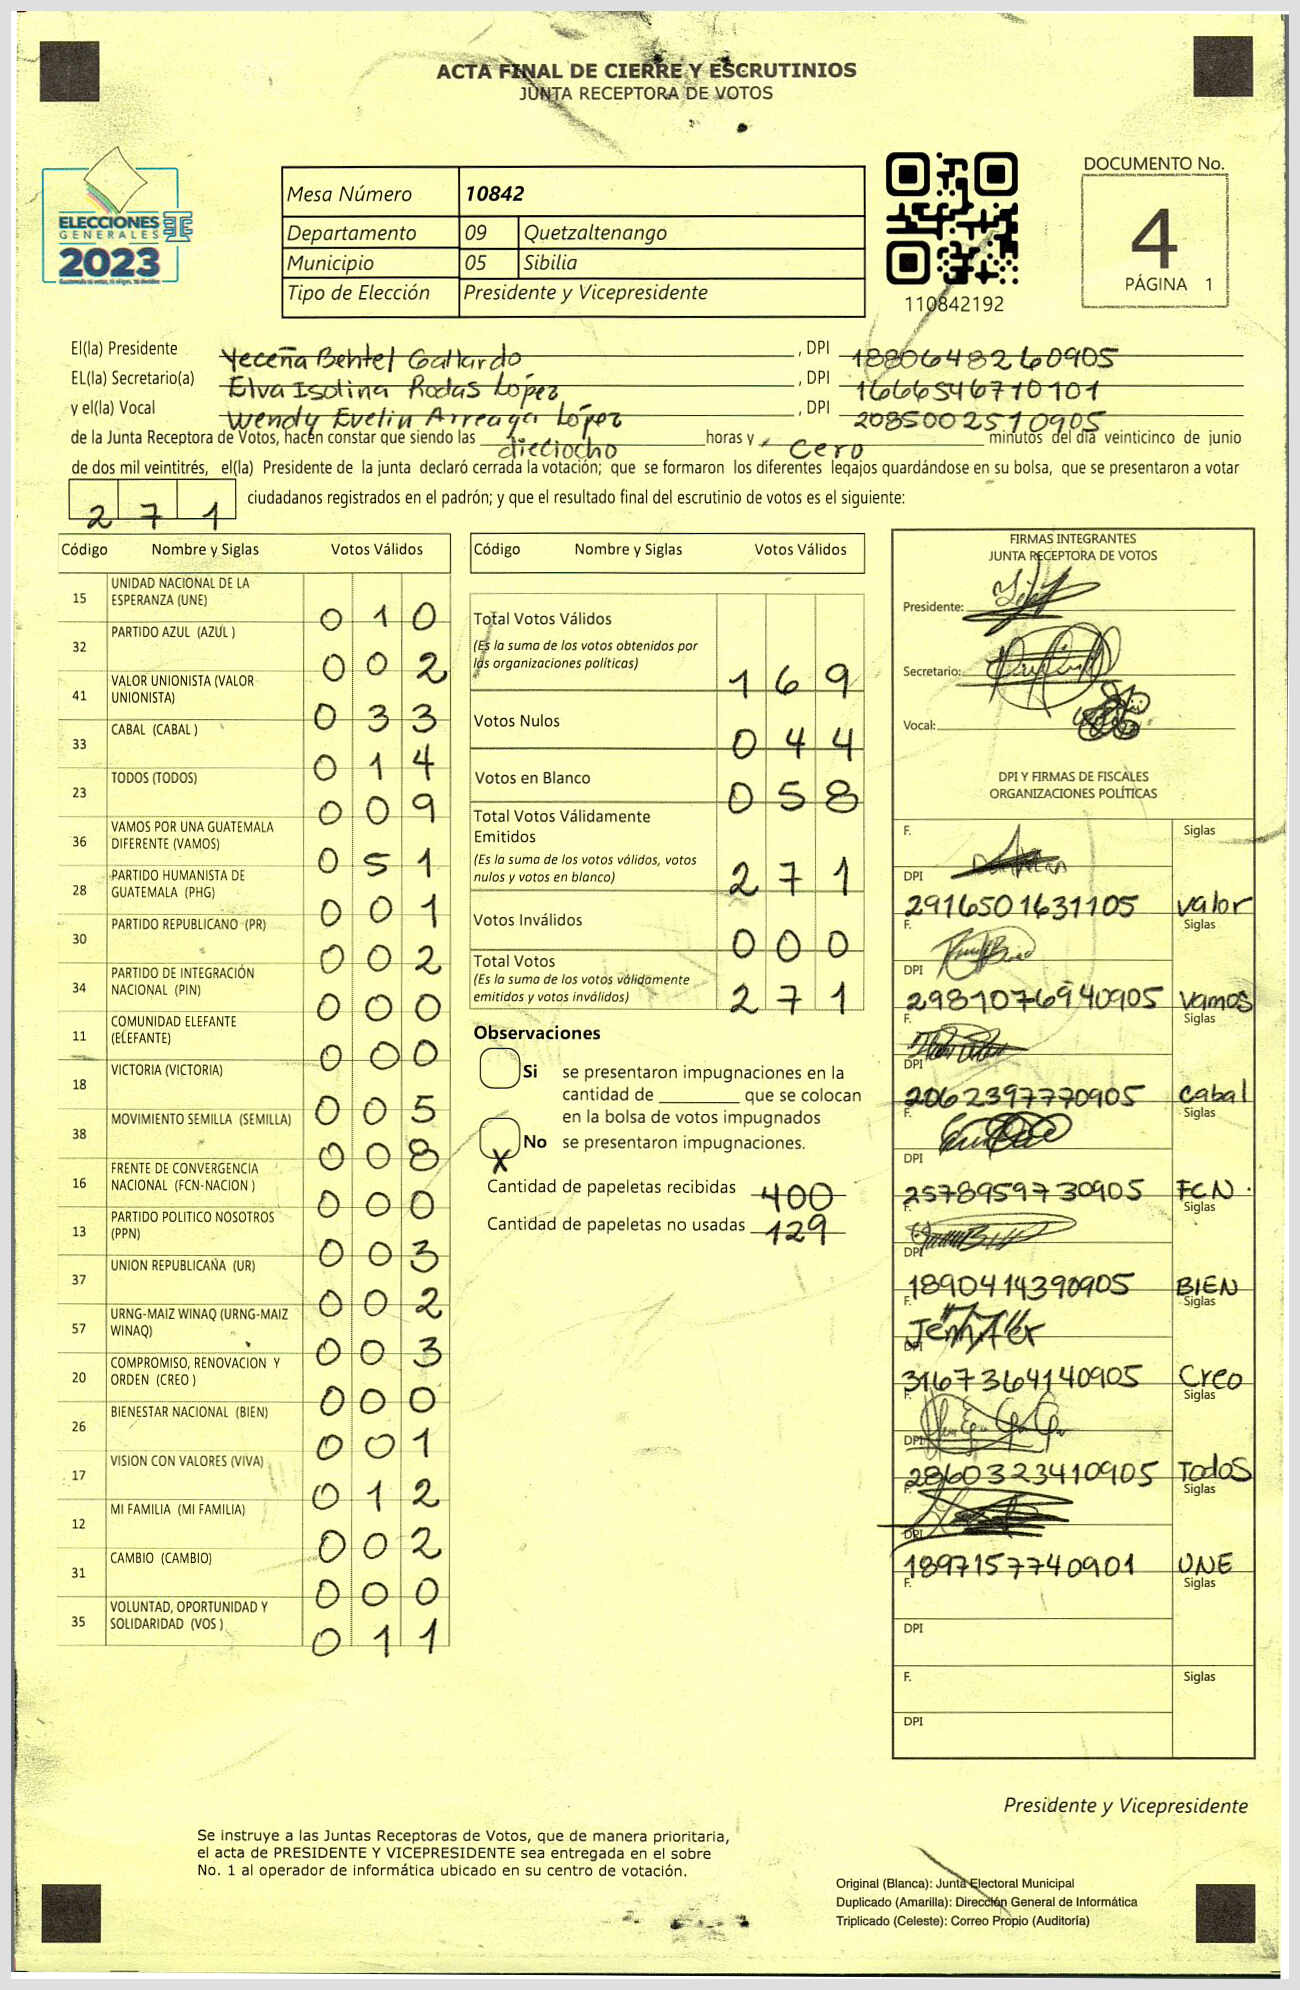 ACTA FINAL DE CIERRE Y ESCRUTINIOS
JUNTA RECEPTORA DE VOTOS
ELECCIONES
GENERALES
2023
Mesa Número 10842
Departamento 09 Quetzaltenango
Municipio 05 Sibilia
Tipo de Elección Presidente y Vicepresidente
110842192
DOCUMENTO No.
4
PÁGINA 1
El(la) Presidente Yeceña Behtel Gallardo , DPI 1880648260905
EL(la) Secretario(a) Elva Isolina Rodas López , DPI 1666546710101
y el(la) Vocal Wendy Evelin Arreaga López , DPI 2085002510905
de la Junta Receptora de Votos, hacen constar que siendo las dieciocho horas y Cero minutos del día veinticinco de junio
de dos mil veintitrés, el(la) Presidente de la junta declaró cerrada la votación; que se formaron los diferentes legajos guardándose en su bolsa, que se presentaron a votar
271 ciudadanos registrados en el padrón; y que el resultado final del escrutinio de votos es el siguiente:
Código Nombre y Siglas Votos Válidos
15 UNIDAD NACIONAL DE LA
ESPERANZA (UNE) 010
32 PARTIDO AZUL (AZUL ) 002
41 VALOR UNIONISTA (VALOR
UNIONISTA) 033
33 CABAL (CABAL ) 014
23 TODOS (TODOS) 009
36 VAMOS POR UNA GUATEMALA
DIFERENTE (VAMOS) 051
28 PARTIDO HUMANISTA DE
GUATEMALA (PHG) 001
30 PARTIDO REPUBLICANO (PR) 002
34 PARTIDO DE INTEGRACIÓN
NACIONAL (PIN) 000
11 COMUNIDAD ELEFANTE
(ELEFANTE) 000
18 VICTORIA (VICTORIA) 005
38 MOVIMIENTO SEMILLA (SEMILLA) 008
16 FRENTE DE CONVERGENCIA
NACIONAL (FCN-NACION ) 000
13 PARTIDO POLITICO NOSOTROS
(PPN) 003
37 UNION REPUBLICANA (UR) 002
57 URNG-MAIZ WINAQ (URNG-MAIZ
WINAQ) 003
20 COMPROMISO, RENOVACION Y
ORDEN (CREO ) 000
26 BIENESTAR NACIONAL (BIEN) 001
17 VISION CON VALORES (VIVA) 012
12 MI FAMILIA (MI FAMILIA) 002
31 CAMBIO (CAMBIO) 000
35 VOLUNTAD, OPORTUNIDAD Y
SOLIDARIDAD (VOS ) 011
Código Nombre y Siglas Votos Válidos
Total Votos Válidos
(Es la suma de los votos obtenidos por
las organizaciones políticas) 169
Votos Nulos 044
Votos en Blanco 058
Total Votos Válidamente
Emitidos
(Es la suma de los votos válidos, votos
nulos y votos en blanco) 271
Votos Inválidos 000
Total Votos
(Es la suma de los votos válidamente
emitidos y votos inválidos) 271
Observaciones
Si se presentaron impugnaciones en la
cantidad de ________ que se colocan
en la bolsa de votos impugnados
X No se presentaron impugnaciones.
Cantidad de papeletas recibidas 400
Cantidad de papeletas no usadas 129
FIRMAS INTEGRANTES
JUNTA RECEPTORA DE VOTOS
Presidente:
Secretario:
Vocal:
DPI Y FIRMAS DE FISCALES
ORGANIZACIONES POLÍTICAS
F. Siglas
DPI 2916501631105 Valor
F. Siglas
DPI 2981076940905 Vamos
F. Siglas
DPI 2062397770905 Cabal
F. Siglas
DPI 2578959730905 FCN.
F. Siglas
DPI 1890414390905 BIEN
F. Siglas
DPI 3167364140905 Creo
F. Siglas
DPI 2860323410905 Todos
F. Siglas
DPI 1897157740901 UNE
F. Siglas
DPI
F. Siglas
DPI
Presidente y Vicepresidente
Se instruye a las Juntas Receptoras de Votos, que de manera prioritaria,
el acta de PRESIDENTE Y VICEPRESIDENTE sea entregada en el sobre
No. 1 al operador de informática ubicado en su centro de votación.
Original (Blanca): Junta Electoral Municipal
Duplicado (Amarilla): Dirección General de Informática
Triplicado (Celeste): Correo Propio (Auditoría)